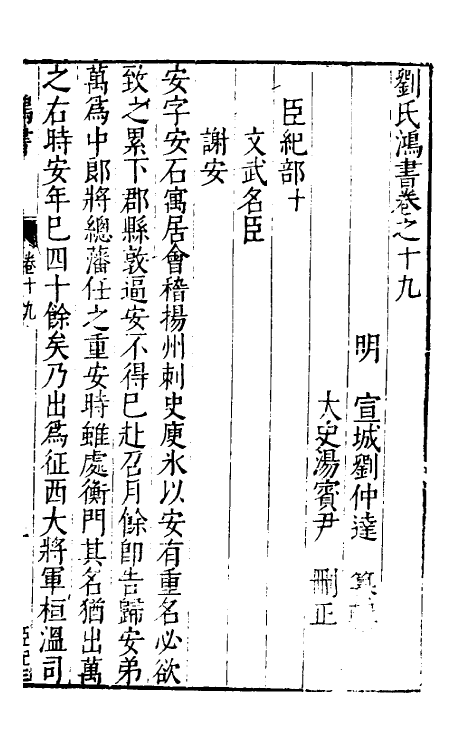 劉氏鴻書卷之十九
明　宣城劉仲達
太史湯賓尹　刪正
臣紀部十
文武名臣
謝安
安字安石寓居會稽揚州刺史庾氷以安有重名必欲
致之累下郡縣敦逼安不得巳赴召月餘即告歸安弟
萬爲中郎將總藩任之重安時雖處衡門其名猶出萬
之右時安年巳四十餘矣乃出爲征西大將軍桓溫司
卷十九